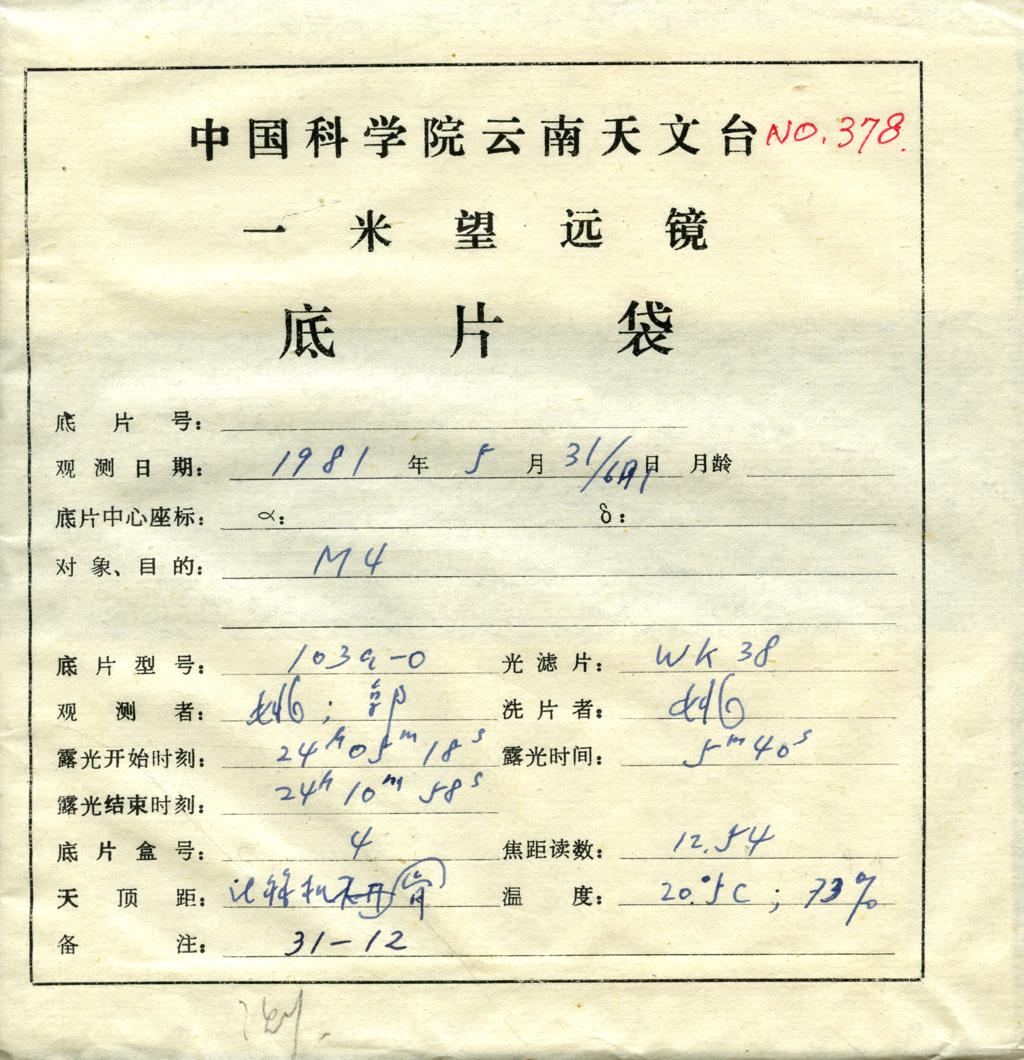 中国科学院云南天文台 NO.378.
一米望远镜
底片袋
底片号：
观测日期： 1981 年 5 月 31/6月1日 月龄
底片中心座标： α： δ：
对象、目的： M4
底片型号： 103a-O 光滤片： WK 38
观测者： 姚；郭 洗片者： 姚
露光开始时刻： 24h05m18s 露光时间： 5m40s
露光结束时刻： 24h10m58s
底片盒号： 4 焦距读数： 12.54
天顶距： 温度： 20.°5C；73%
备注： 31-12